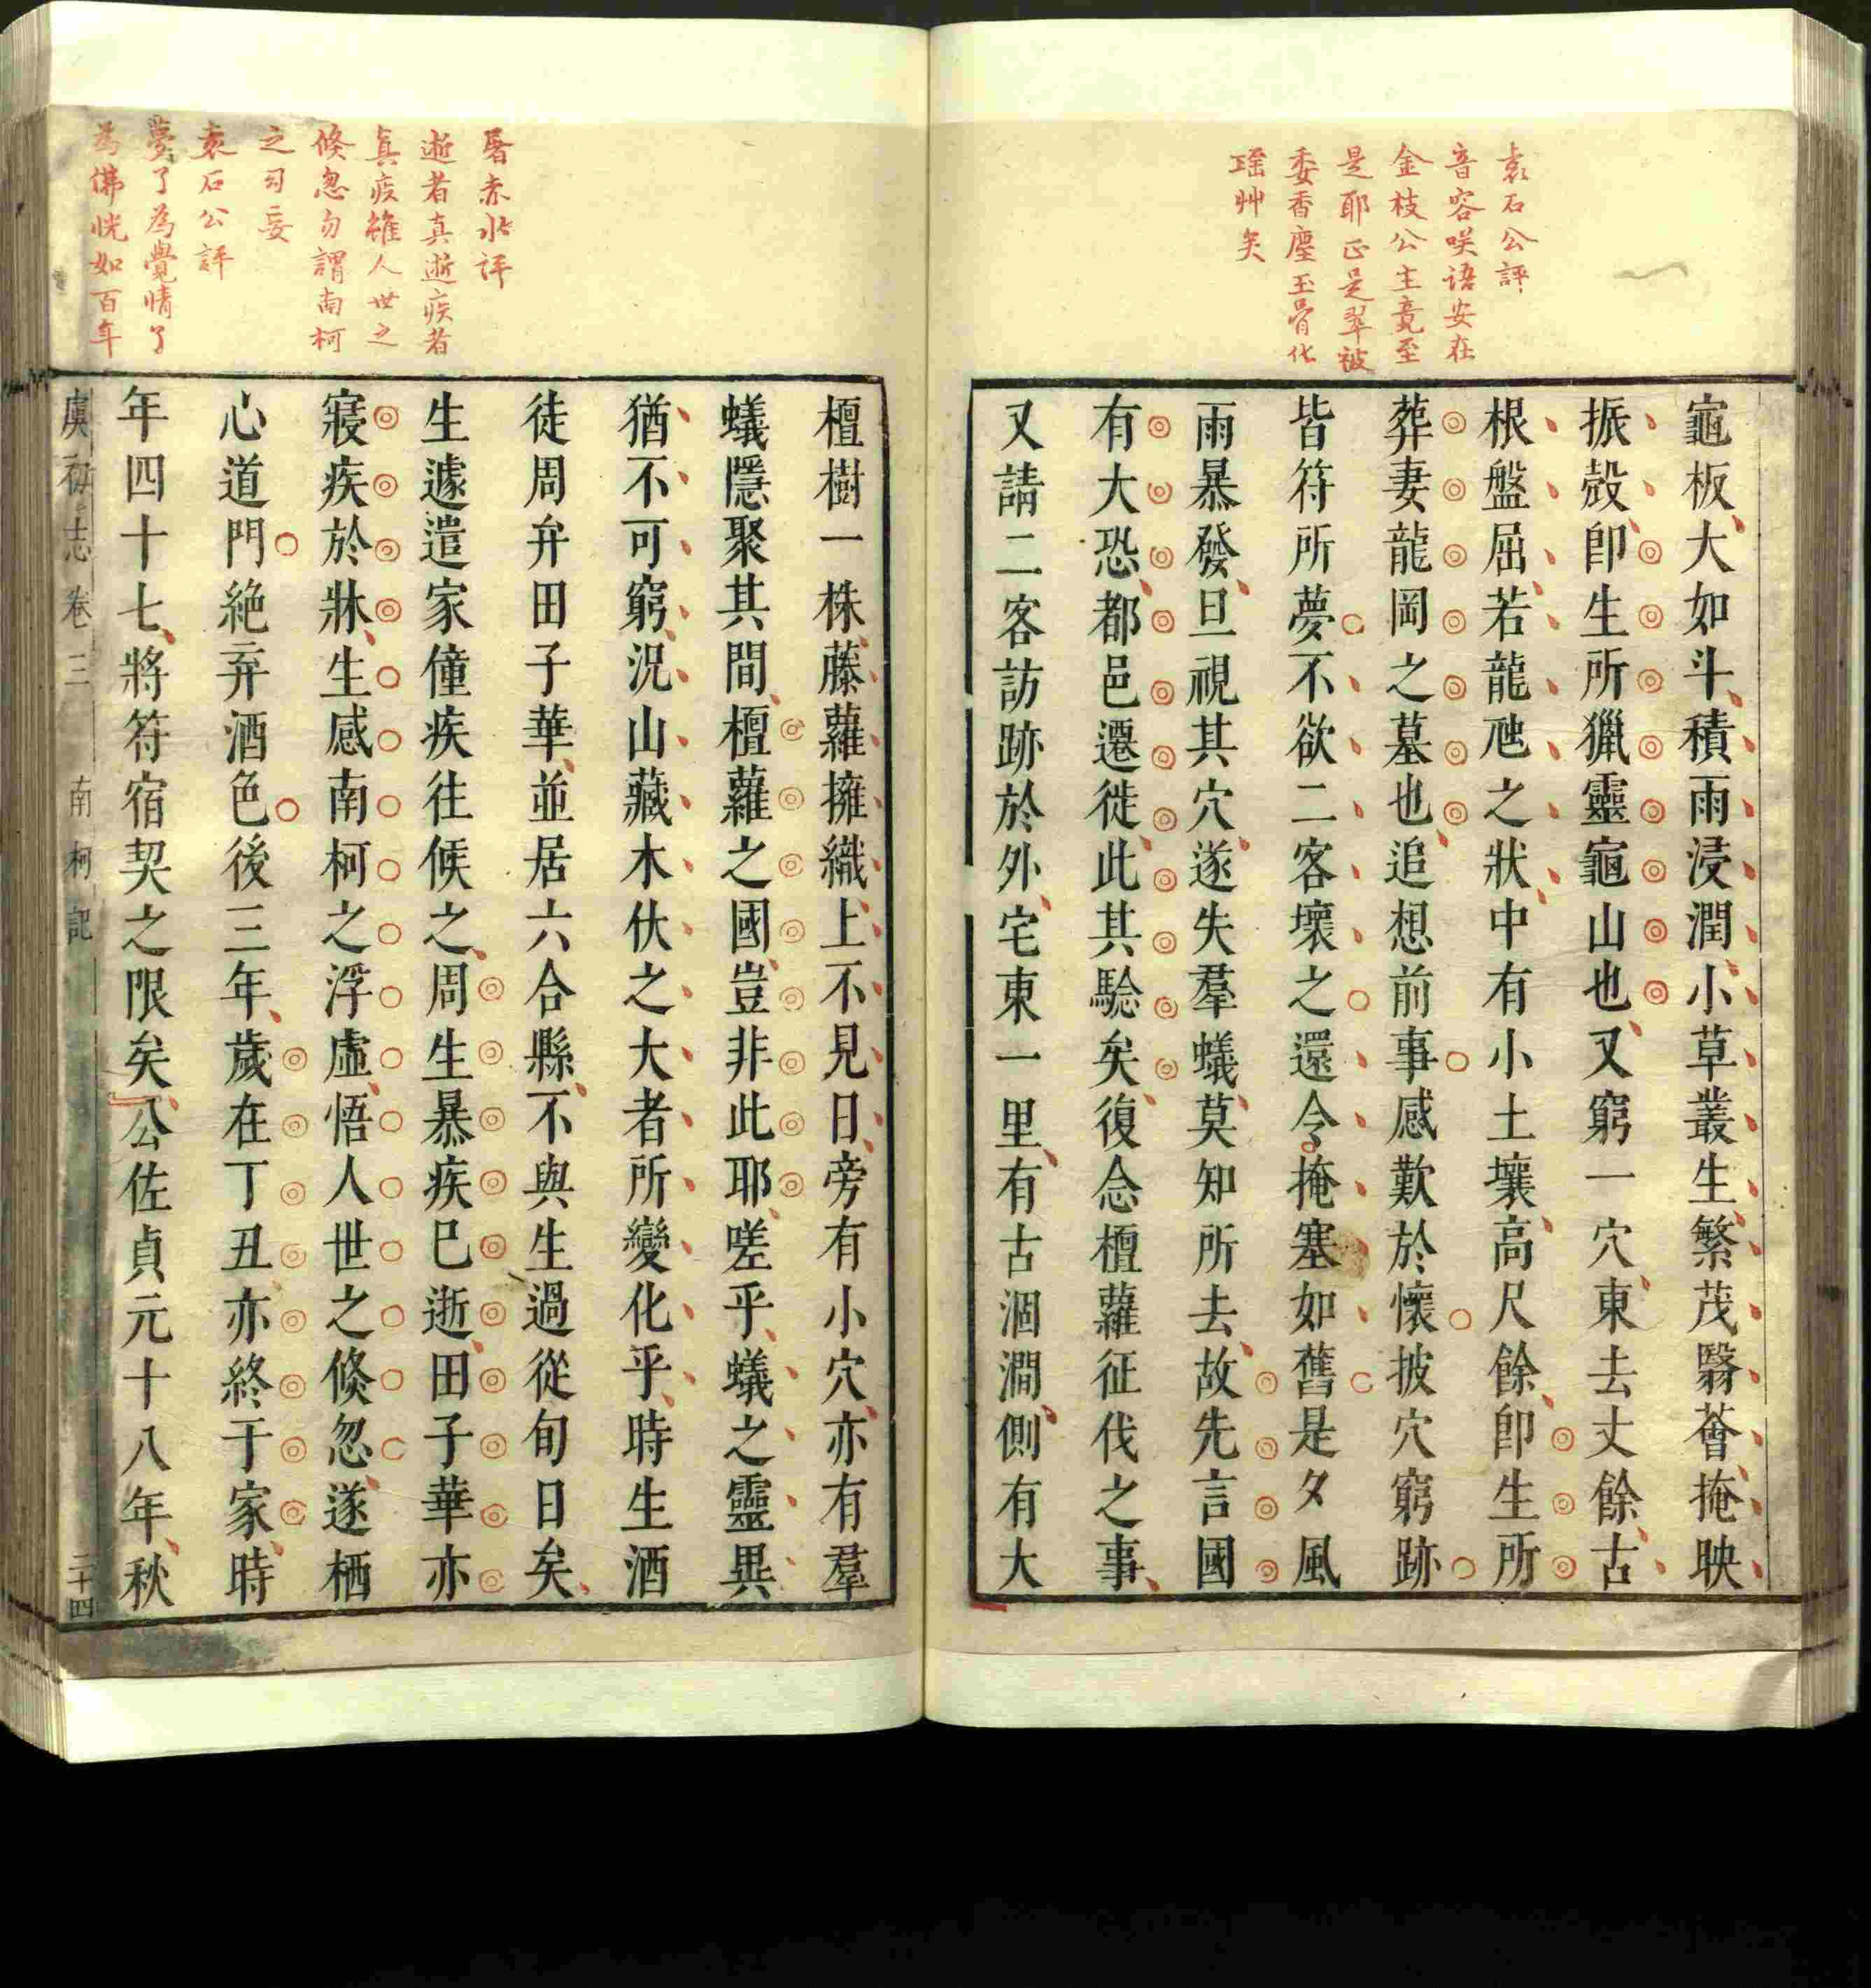 袁石公評
音容咲語安在
金枝公主竟至
是耶正是翠被
委香塵玉骨化
瑶艸矣
龜板大如斗積雨浸潤小草叢生繁茂翳薈掩映
振殼卽生所獵靈龜山也又窮一穴東去丈餘古
根盤屈若龍虺之狀中有小土壤高尺餘卽生所
葬妻龍岡之墓也追想前事感歎於懷披穴窮跡
皆符所夢不欲二客壞之還令掩塞如舊是夕風
雨暴發旦視其穴遂失羣蟻莫知所去故先言國
有大恐都邑遷徙此其驗矣復念檀蘿征伐之事
又請二客訪跡於外宅東一里有古涸澗側有大
屠赤水評
逝者真逝疾者
真疾雖人世之
倐忽勿謂南柯
之幻妄
袁石公評
夢了為覺情了
為佛恍如百年
檀樹一株藤蘿擁織上不見日旁有小穴亦有羣
蟻隱聚其間檀蘿之國豈非此耶嗟乎蟻之靈異
猶不可窮況山藏木伏之大者所變化乎時生酒
徒周弁田子華並居六合縣不與生過從旬日矣
生遽遣家僮疾往候之周生暴疾巳逝田子華亦
寢疾於牀生感南柯之浮虛悟人世之倐忽遂栖
心道門絶弃酒色後三年歲在丁丑亦終于家時
年四十七將符宿契之限矣公佐貞元十八年秋
虞初志 卷三 南柯記 二十四